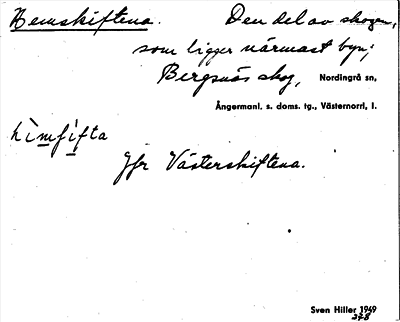 Hemskiftena. Den del av skogen,
som ligger närmast byn;
Bergsnäs skog, Nordingrå sn,
Ångermanl. s. doms. tg., Västernorrl. l.
hìmfìfta
Jfr Västerskiftena.
Sven Hiller 1949
278